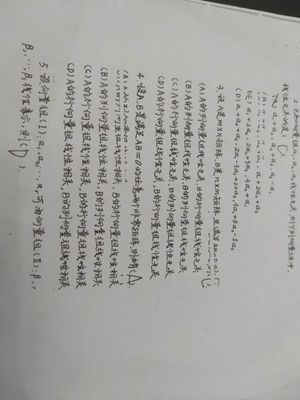 2. 已知向量组 a₁, a₂, a₃, a₄ 线性无关, 则下列向量组中,
线性无关的是( D
3. 设A是m×n矩阵, B是n×m矩阵, 且满足AB=E, 则(
(A) A的列向量组线性无关, B的行向量组线性无关
(B) A的列向量组线性无关, B的列向量组线性无关
(C) A的行向量组线性无关, B的列向量组线性无关
(D) A的行向量组线性无关, B的行向量组线性无关
4. 设A, B是满足AB=0的任意两个非零矩阵, 则必有(A).
(A) A的列向量组线性相关, B的行向量组线性相关
(B) A的列向量组线性相关, B的列向量组线性相关
(C) A的行向量组线性相关, B的行向量组线性相关
(D) A的行向量组线性相关, B的列向量组线性相关
5. 设向量组(I): a₁, a₂, … aᵣ 可由向量组(II): β₁,
β₂, …, βₛ 线性表示, 则(D).